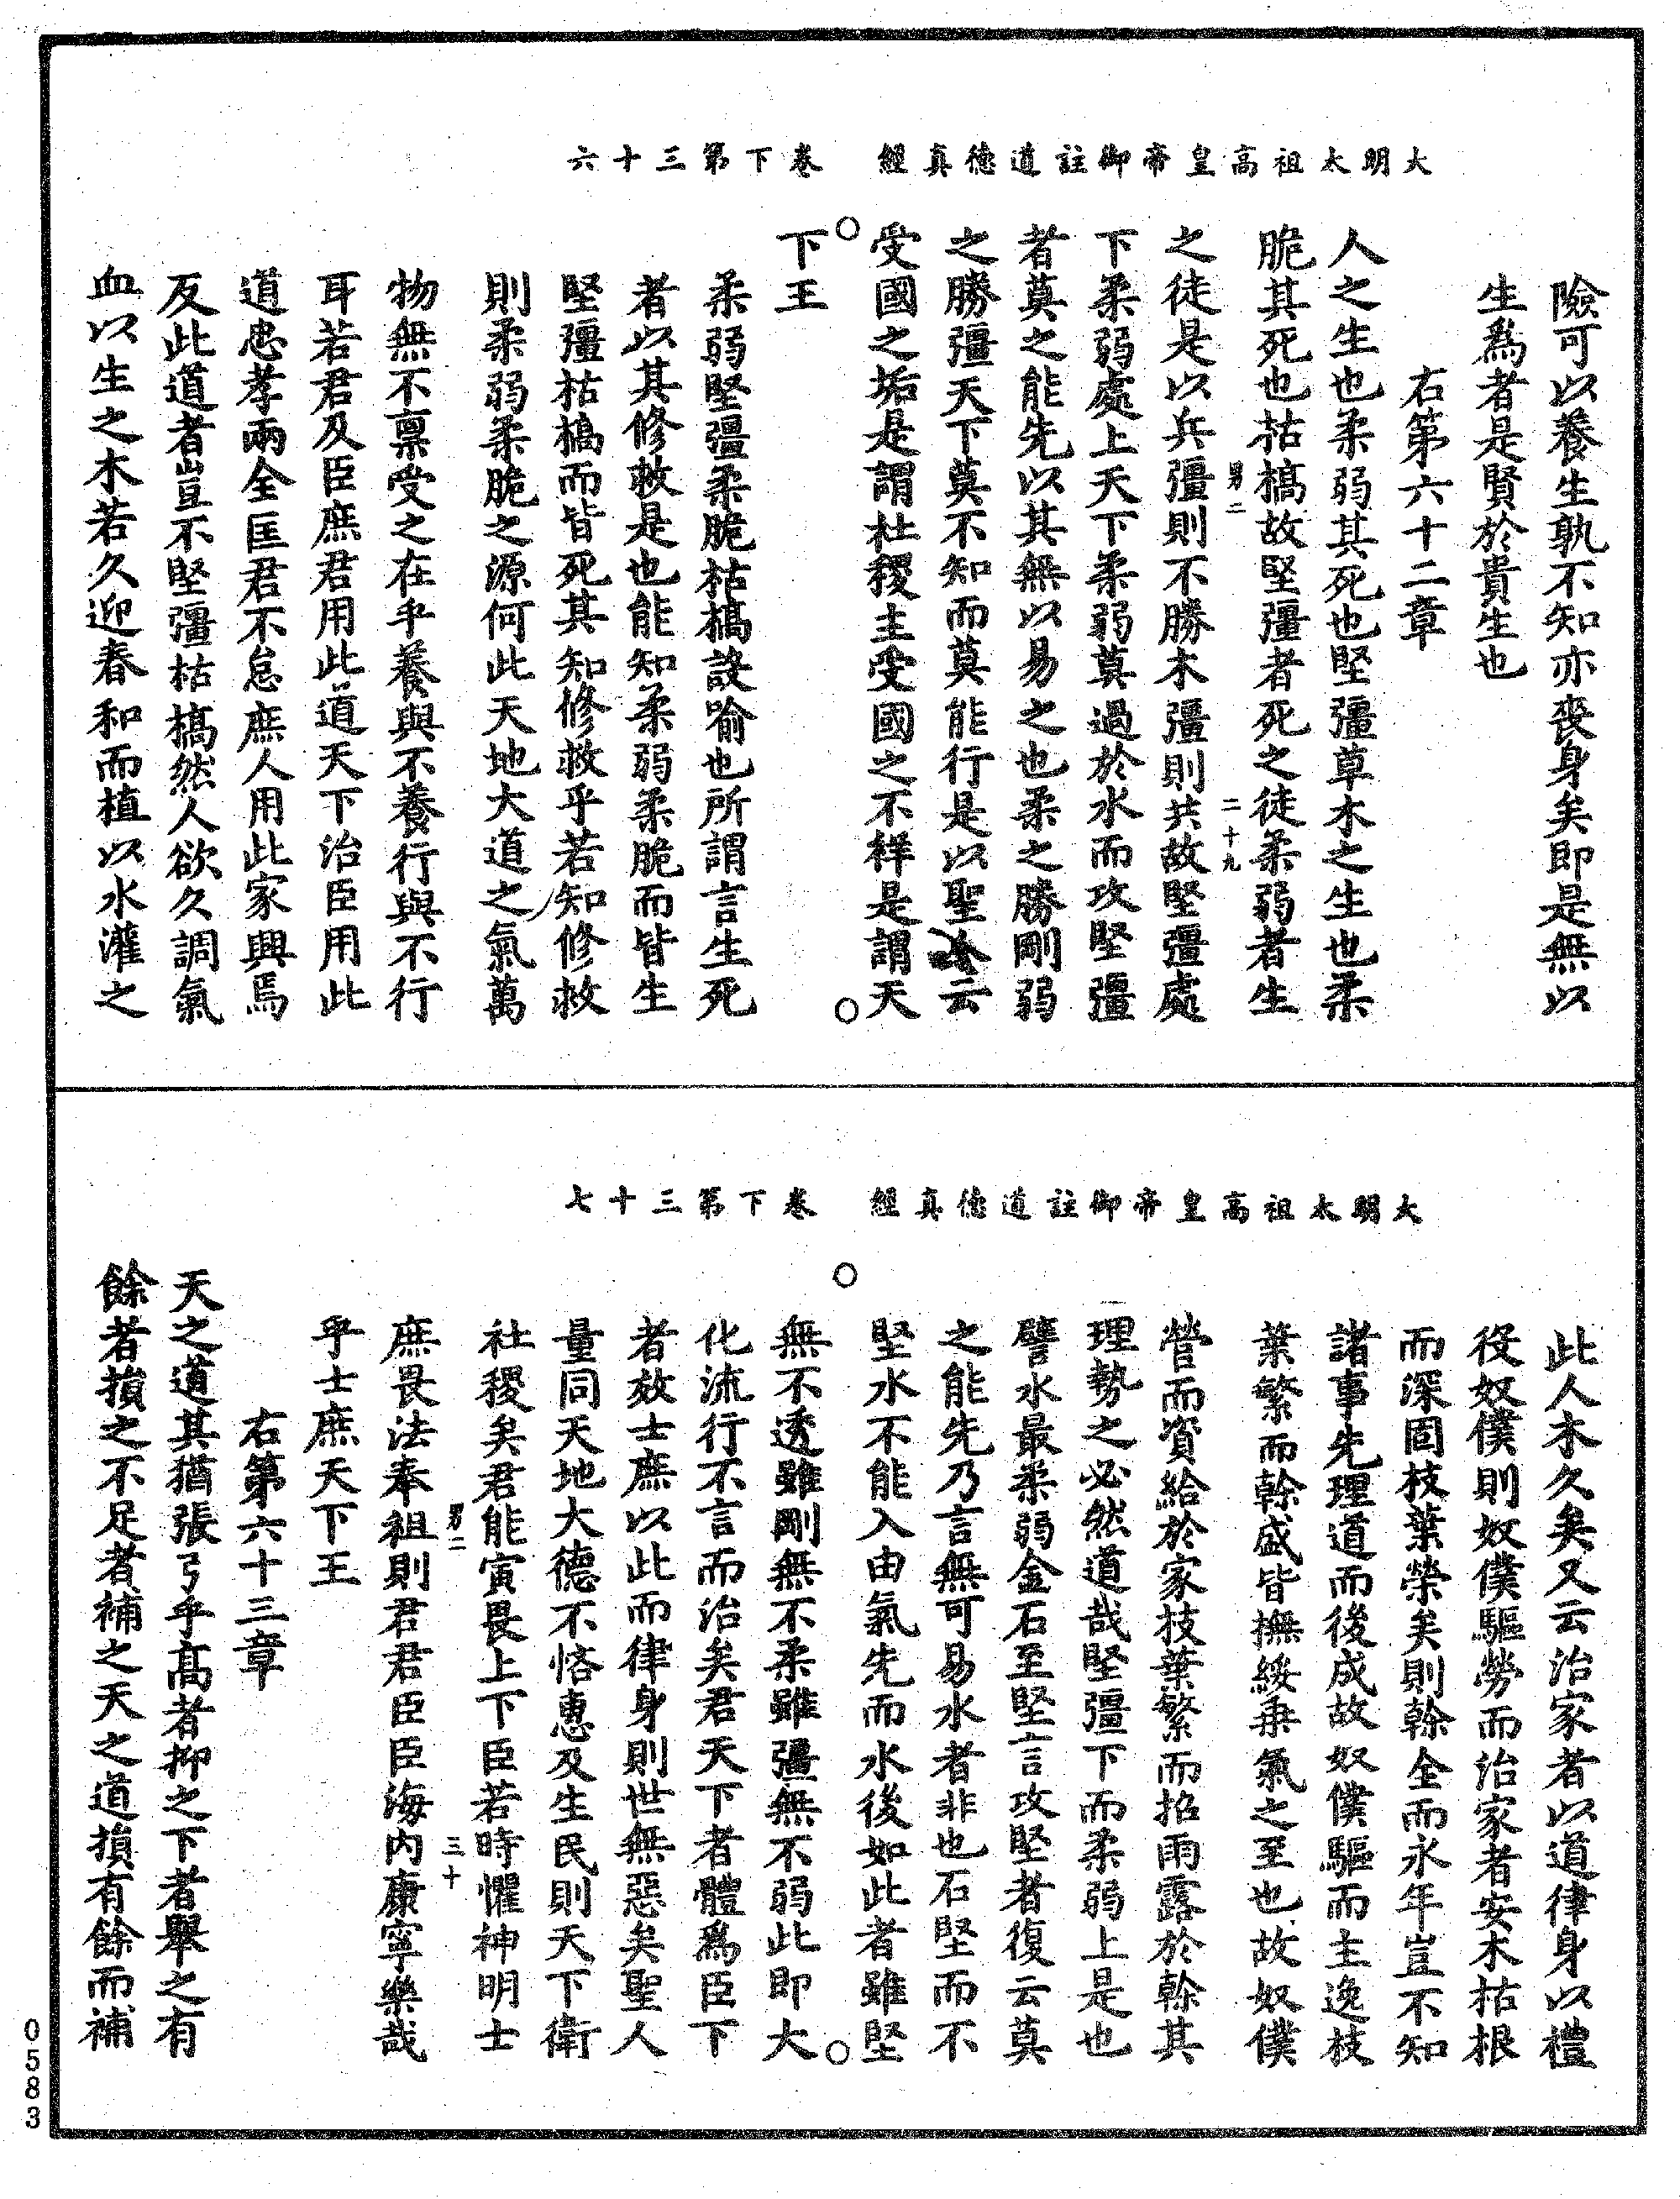 大明太祖高皇帝御註道德真經　卷下第三十六
險可以養生孰不知亦喪身矣即是無以
生為者是賢於貴生也
右第六十二章
人之生也柔弱其死也堅彊草木之生也柔
脆其死也枯槁故堅彊者死之徒柔弱者生
男二　二十九
之徒是以兵彊則不勝木彊則共故堅彊處
下柔弱處上天下柔弱莫過於水而攻堅彊
者莫之能先以其無以易之也柔之勝剛弱
之勝彊天下莫不知而莫能行是以聖人云
受國之垢是謂社稷主受國之不祥是謂天
下王
柔弱堅彊柔脆枯槁設喻也所謂言生死
者以其修救是也能知柔弱柔脆而皆生
堅彊枯槁而皆死其知修救乎若知修救
則柔弱柔脆之源何此天地大道之氣萬
物無不稟受之在乎養與不養行與不行
耳若君及臣庶君用此道天下治臣用此
道忠孝兩全匡君不怠庶人用此家興焉
反此道者豈不堅彊枯槁然人欲久調氣
血以生之木若久迎春和而植以水灌之
大明太祖高皇帝御註道德真經　卷下第三十七
此人木久矣又云治家者以道律身以禮
役奴僕則奴僕驅勞而治家者安木枯根
而深固枝葉榮矣則榦全而永年豈不知
諸事先理道而後成故奴僕驅而主逸枝
葉繁而榦盛皆撫綏乘氣之至也故奴僕
營而資給於家枝葉繁而招雨露於榦其
理勢之必然道哉堅彊下而柔弱上是也
譬水最柔弱金石至堅言攻堅者復云莫
之能先乃言無可易水者非也石堅而不
堅水不能入由氣先而水後如此者雖堅
無不透雖剛無不柔雖彊無不弱此即大
化流行不言而治矣君天下者體為臣下
者效士庶以此而律身則世無惡矣聖人
量同天地大德不恡惠及生民則天下衛
社稷矣君能寅畏上下臣若時懼神明士
男二　三十
庶畏法奉祖則君君臣臣海內康寧樂哉
乎士庶天下王
右第六十三章
天之道其猶張弓乎高者抑之下者舉之有
餘者損之不足者補之天之道損有餘而補
0583